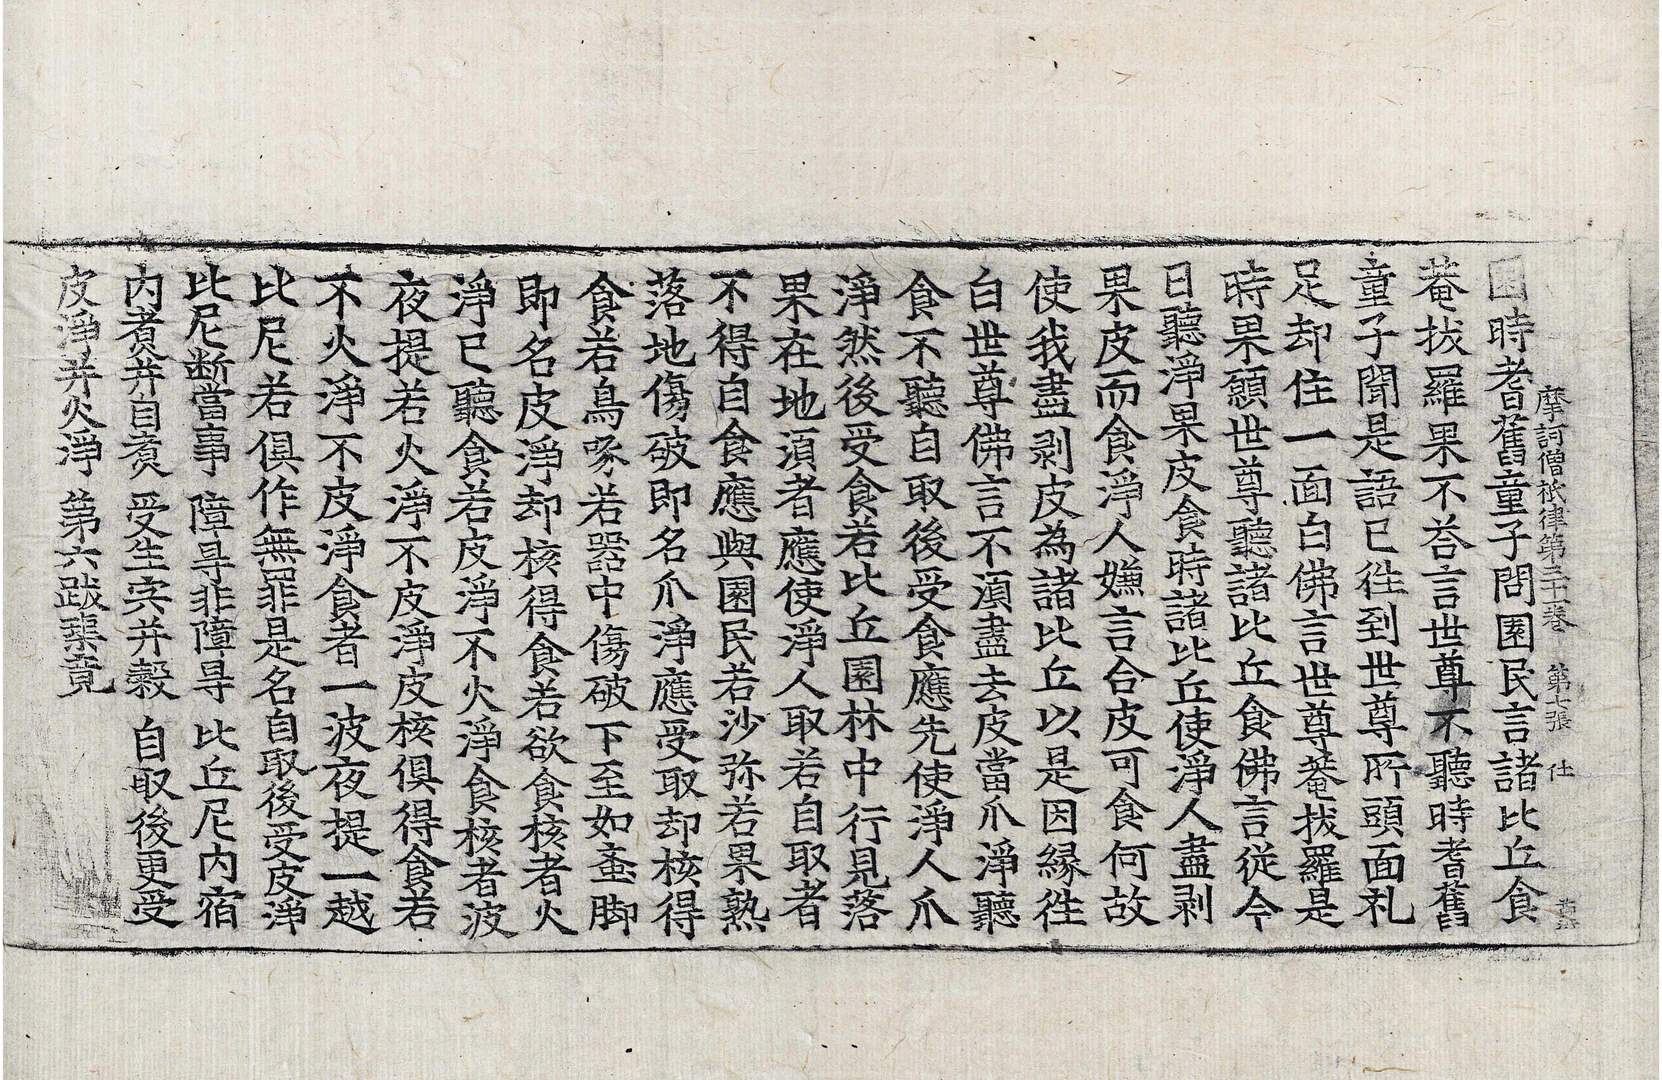 摩訶僧祇律第三十一卷　第七張　仕
園時耆舊童子問園民言諸比丘食
菴拔羅果不荅言世尊不聽時耆舊
童子聞是語已徃到世尊所頭面礼
足却住一面白佛言世尊菴拔羅是
時果願世尊聽諸比丘食佛言從今
日聽淨果皮食時諸比丘使淨人盡剥
果皮而食淨人嫌言合皮可食何故
使我盡剥皮為諸比丘以是因緣徃
白世尊佛言不湏盡去皮當爪淨聽
食不聽自取後受食應先使淨人爪
淨然後受食若比丘園林中行見落
果在地湏者應使淨人取若自取者
不得自食應與園民若沙弥若果熟
落地傷破即名爪淨應受取却核得
食若鳥啄若器中傷破下至如蚉脚
即名皮淨却核得食若欲食核者火
淨已聽食若皮淨不火淨食核者波
夜提若火淨不皮淨皮核俱得食若
不火淨不皮淨食者一波夜提一越
比尼若俱作無罪是名自取後受皮淨
比尼斷當事　障㝵非障㝵　比丘尼内宿
内煮并自煮　受生宍并穀　自取後更受
皮淨并火淨　第六跋渠竟